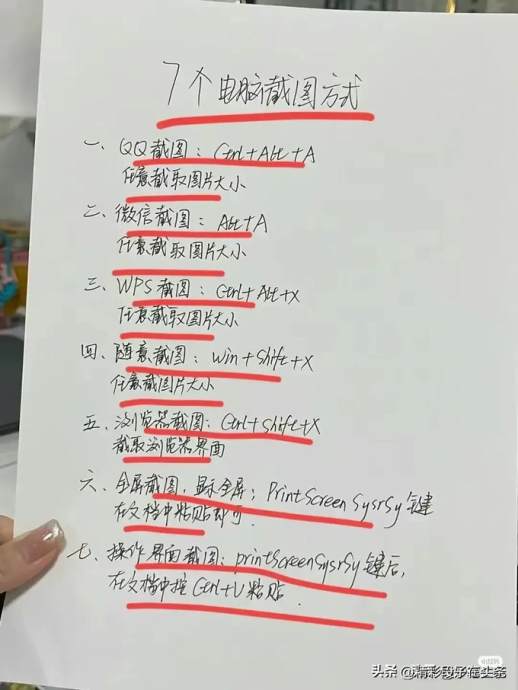 7个电脑截图方式
一、QQ截图：Ctrl+Alt+A
任意截取图片大小
二、微信截图：Alt+A
任意截取图片大小
三、WPS截图：Ctrl+Alt+X
任意截取图片大小
四、随意截图：Win+Shift+X
任意截图片大小
五、浏览器截图：Ctrl+Shift+X
截取浏览器界面
六、全屏截图，显示全屏；PrintScreen SysrSy键
在文档中粘贴即可.
七、操作界面截图：printScreenSysrSy键后，
在文档中按Ctrl+V粘贴.
小红书
头条 @精彩段子在头条